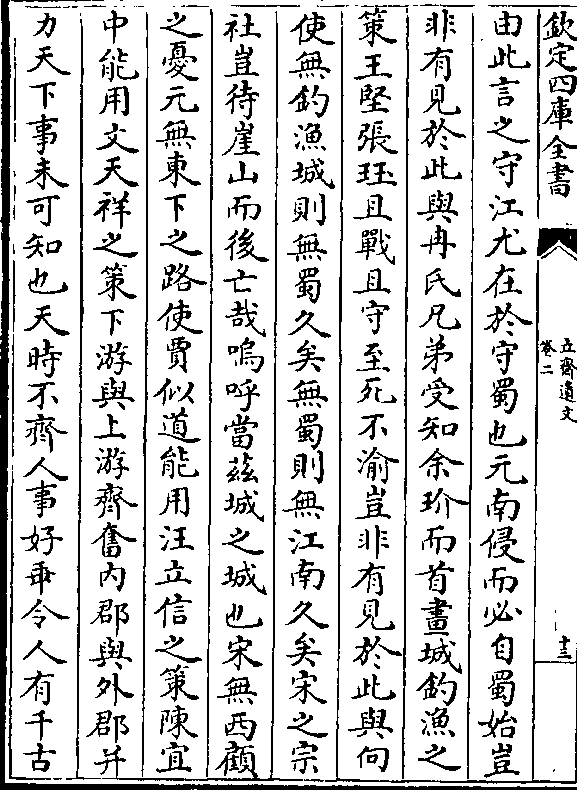 欽定四庫全書
立齋遺文
卷二
十三
由此言之守江尤在於守蜀也元南侵而必自蜀始豈
非有見於此與冉氏兄弟受知余玠而首畫城釣漁之
策王堅張珏且戰且守至死不渝豈非有見於此與向
使無釣漁城則無蜀久矣無蜀則無江南久矣宋之宗
社豈待崖山而後亡哉嗚呼當茲城之城也宋無西顧
之憂元無東下之路使賈似道能用汪立信之策陳宜
中能用文天祥之策下游與上游齊奮内郡與外郡并
力天下事未可知也天時不齊人事好乖令人有千古